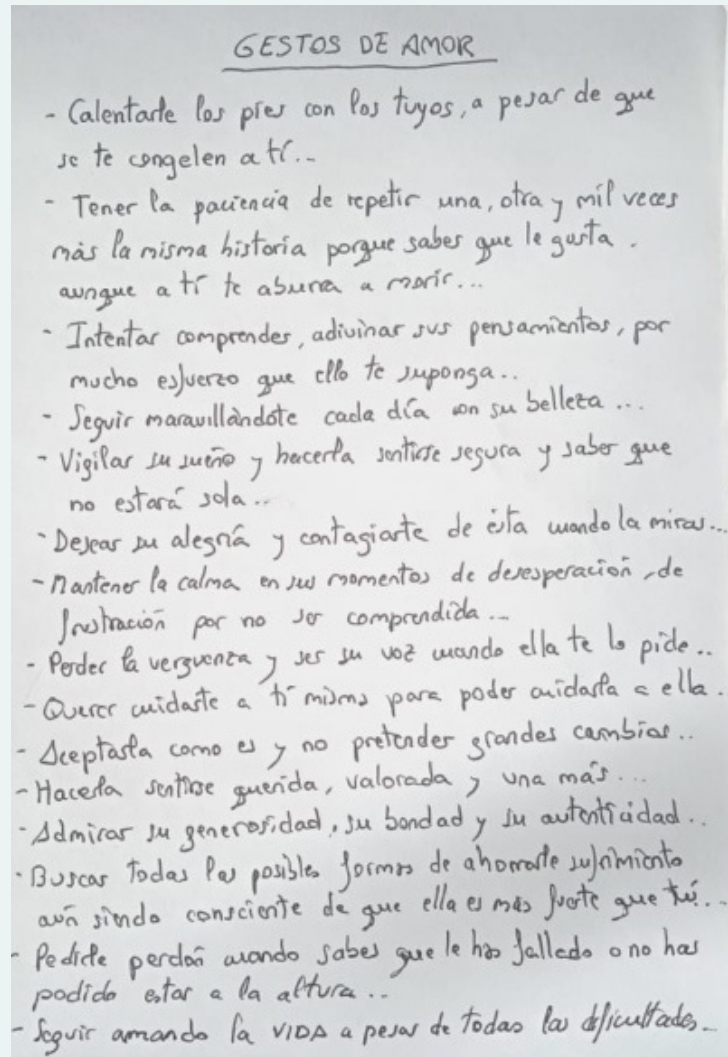 GESTOS DE AMOR
- Calentarle los pies con los tuyos, a pesar de que
se te congelen a tí...
- Tener la paciencia de repetir una, otra y mil veces
más la misma historia porque sabes que le gusta.
aunque a tí te aburra a morir...
- Intentar comprender, adivinar sus pensamientos, por
mucho esfuerzo que ello te suponga..
- Seguir maravillàndote cada día con su belleza ...
- Vigilar su sueño y hacerla sentirse segura y saber que
no estará sola..
- Desear su alegría y contagiarte de ésta cuando la miras...
- Mantener la calma en sus momentos de desesperación, de
frustración por no ser comprendida...
- Perder la verguenza y ser su voz cuando ella te lo pide..
- Querer cuidarte a tí misma para poder cuidarla a ella..
- Aceptarla como es y no pretender grandes cambios..
- Hacerla sentirse querida, valorada y una más...
- Admirar su generosidad, su bondad y su autenticidad..
- Buscar todas las posibles formas de ahorrarle sufrimiento
aún siendo consciente de que ella es más fuerte que tú...
- Pedirle perdón cuando sabes que le has fallado o no has
podido estar a la altura..
- Seguir amando la VIDA a pesar de todas las dificultades..